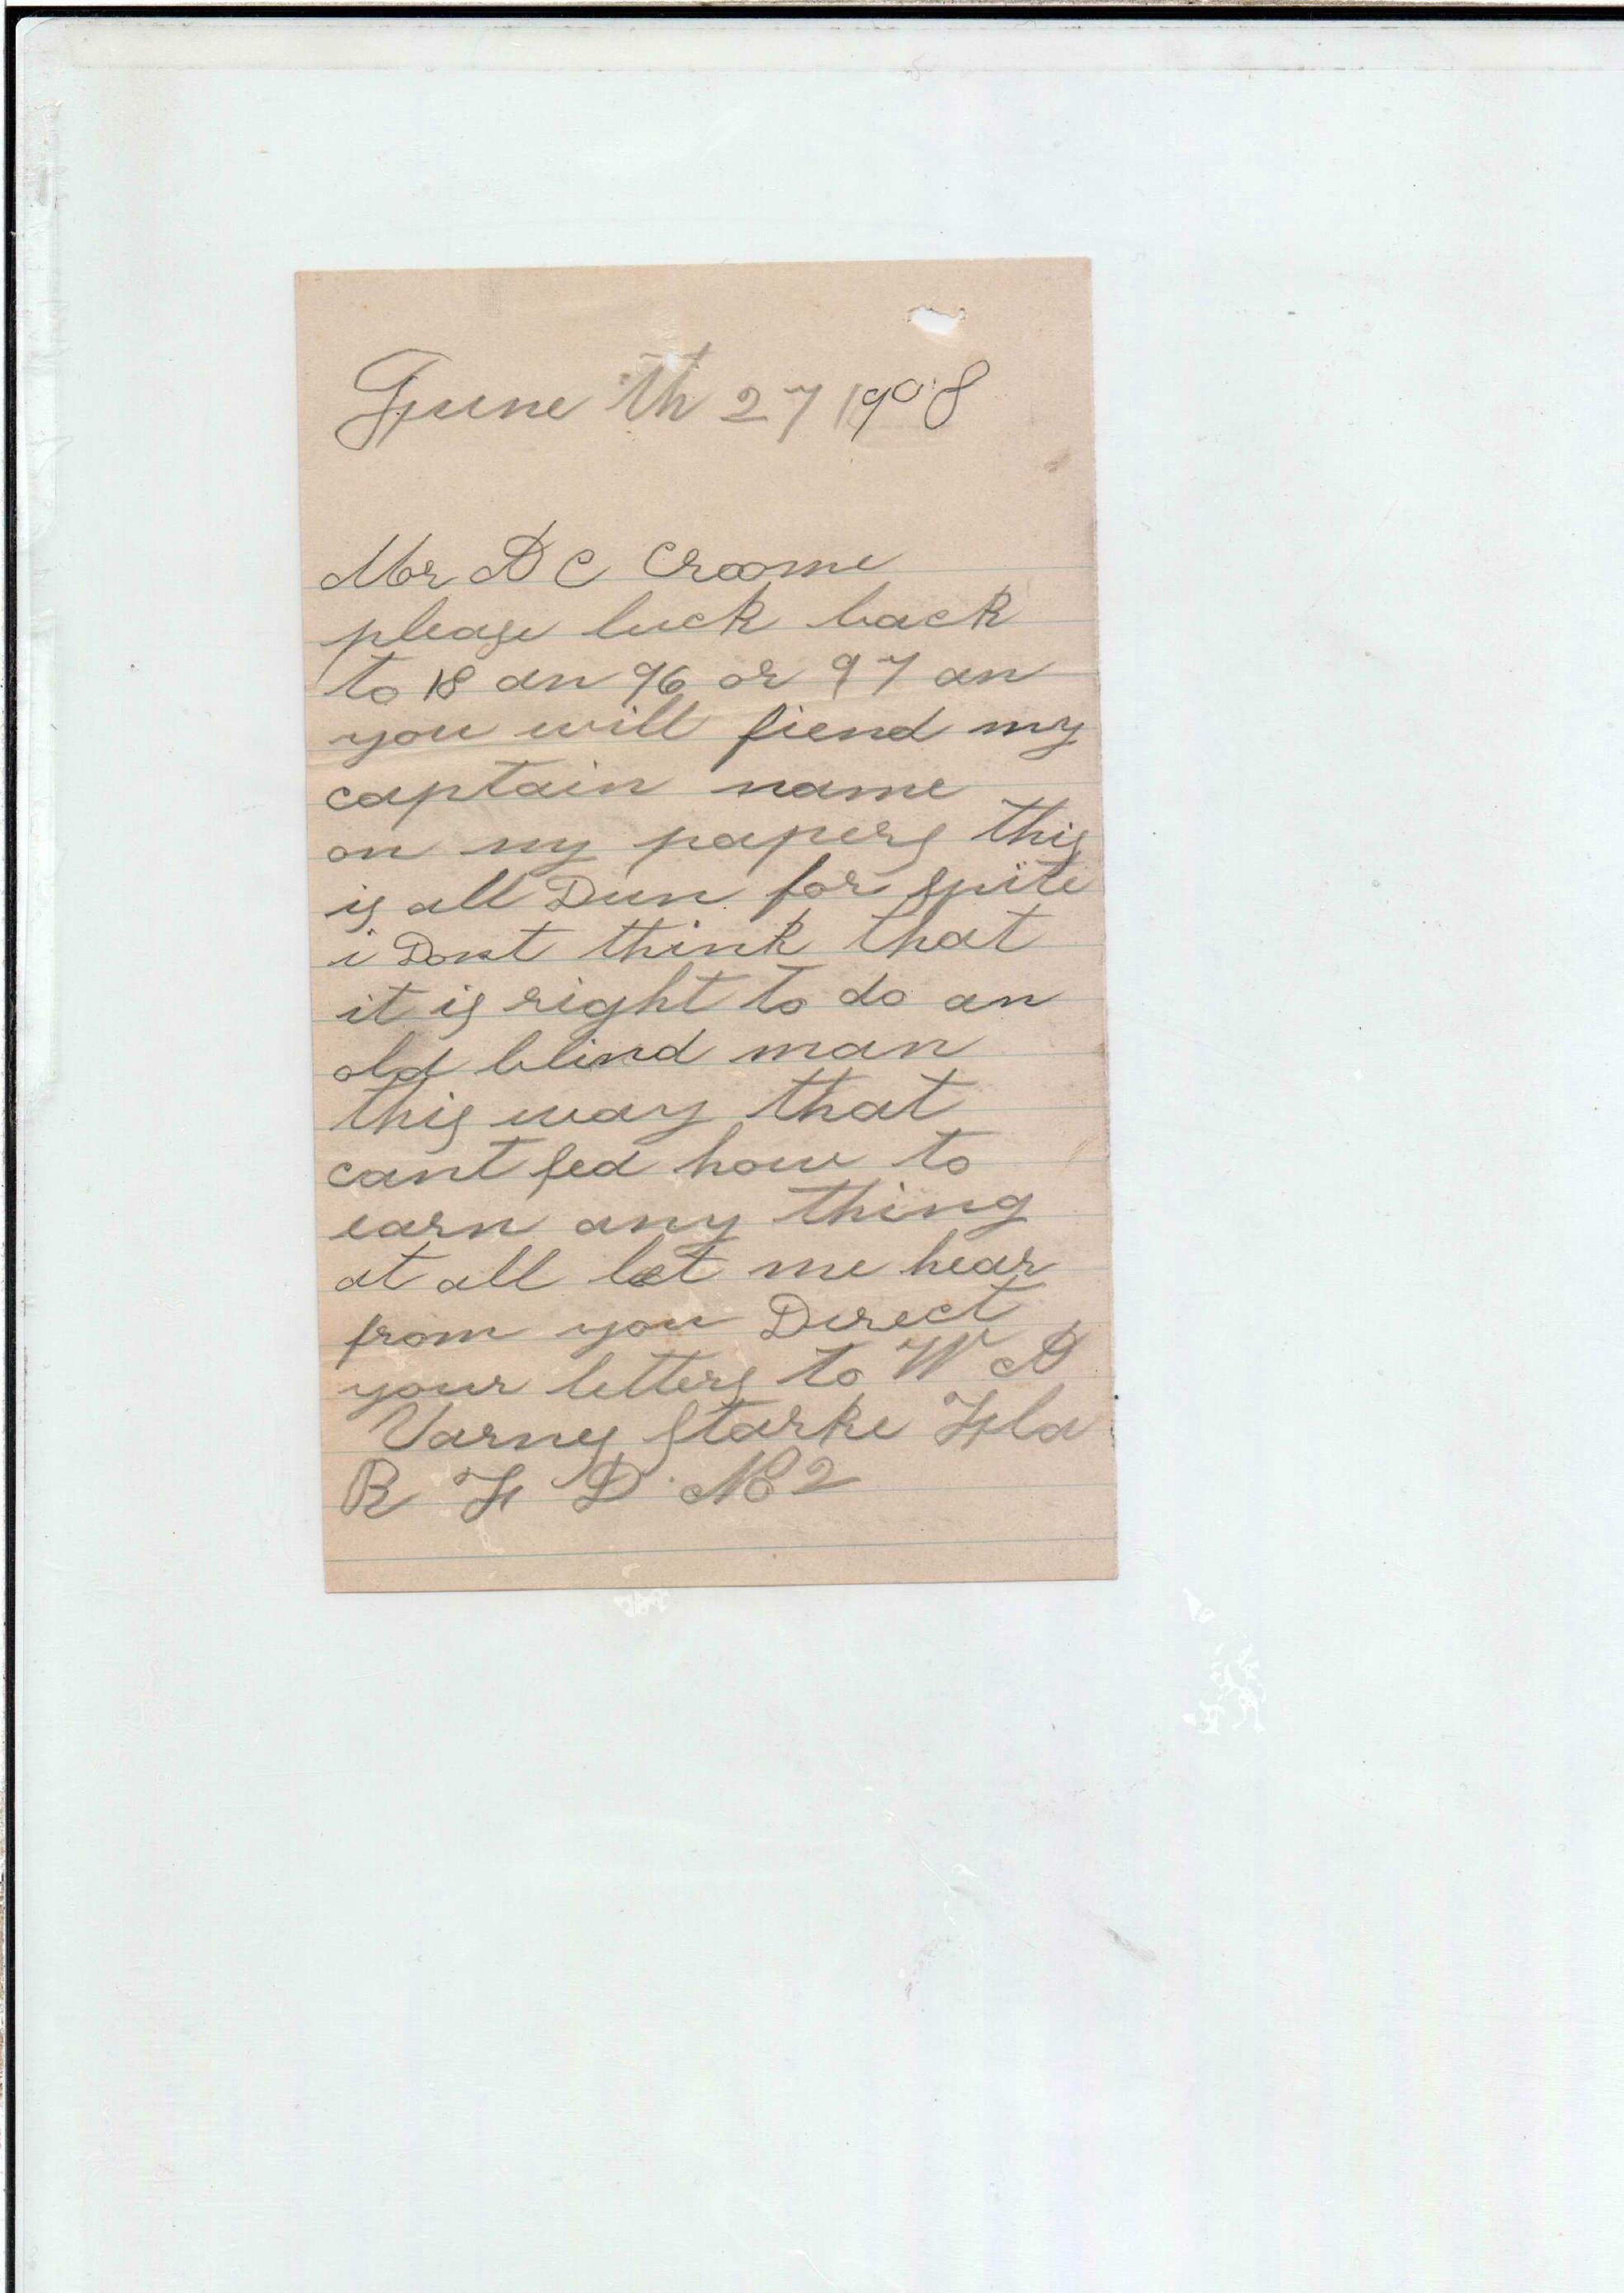 June th 27 1908
Mr A C Croome
please luck back
to 18 an 96 or 97 an
you will fiend my
captain name
on my papers this
is all Dun for spite
i Dont think that
it is right to do an
old blind man
this way that
cant sed how to
earn any thing
at all let me hear
from you Direct
your letters to W A
Varnes Starke Fla
R F D No 2